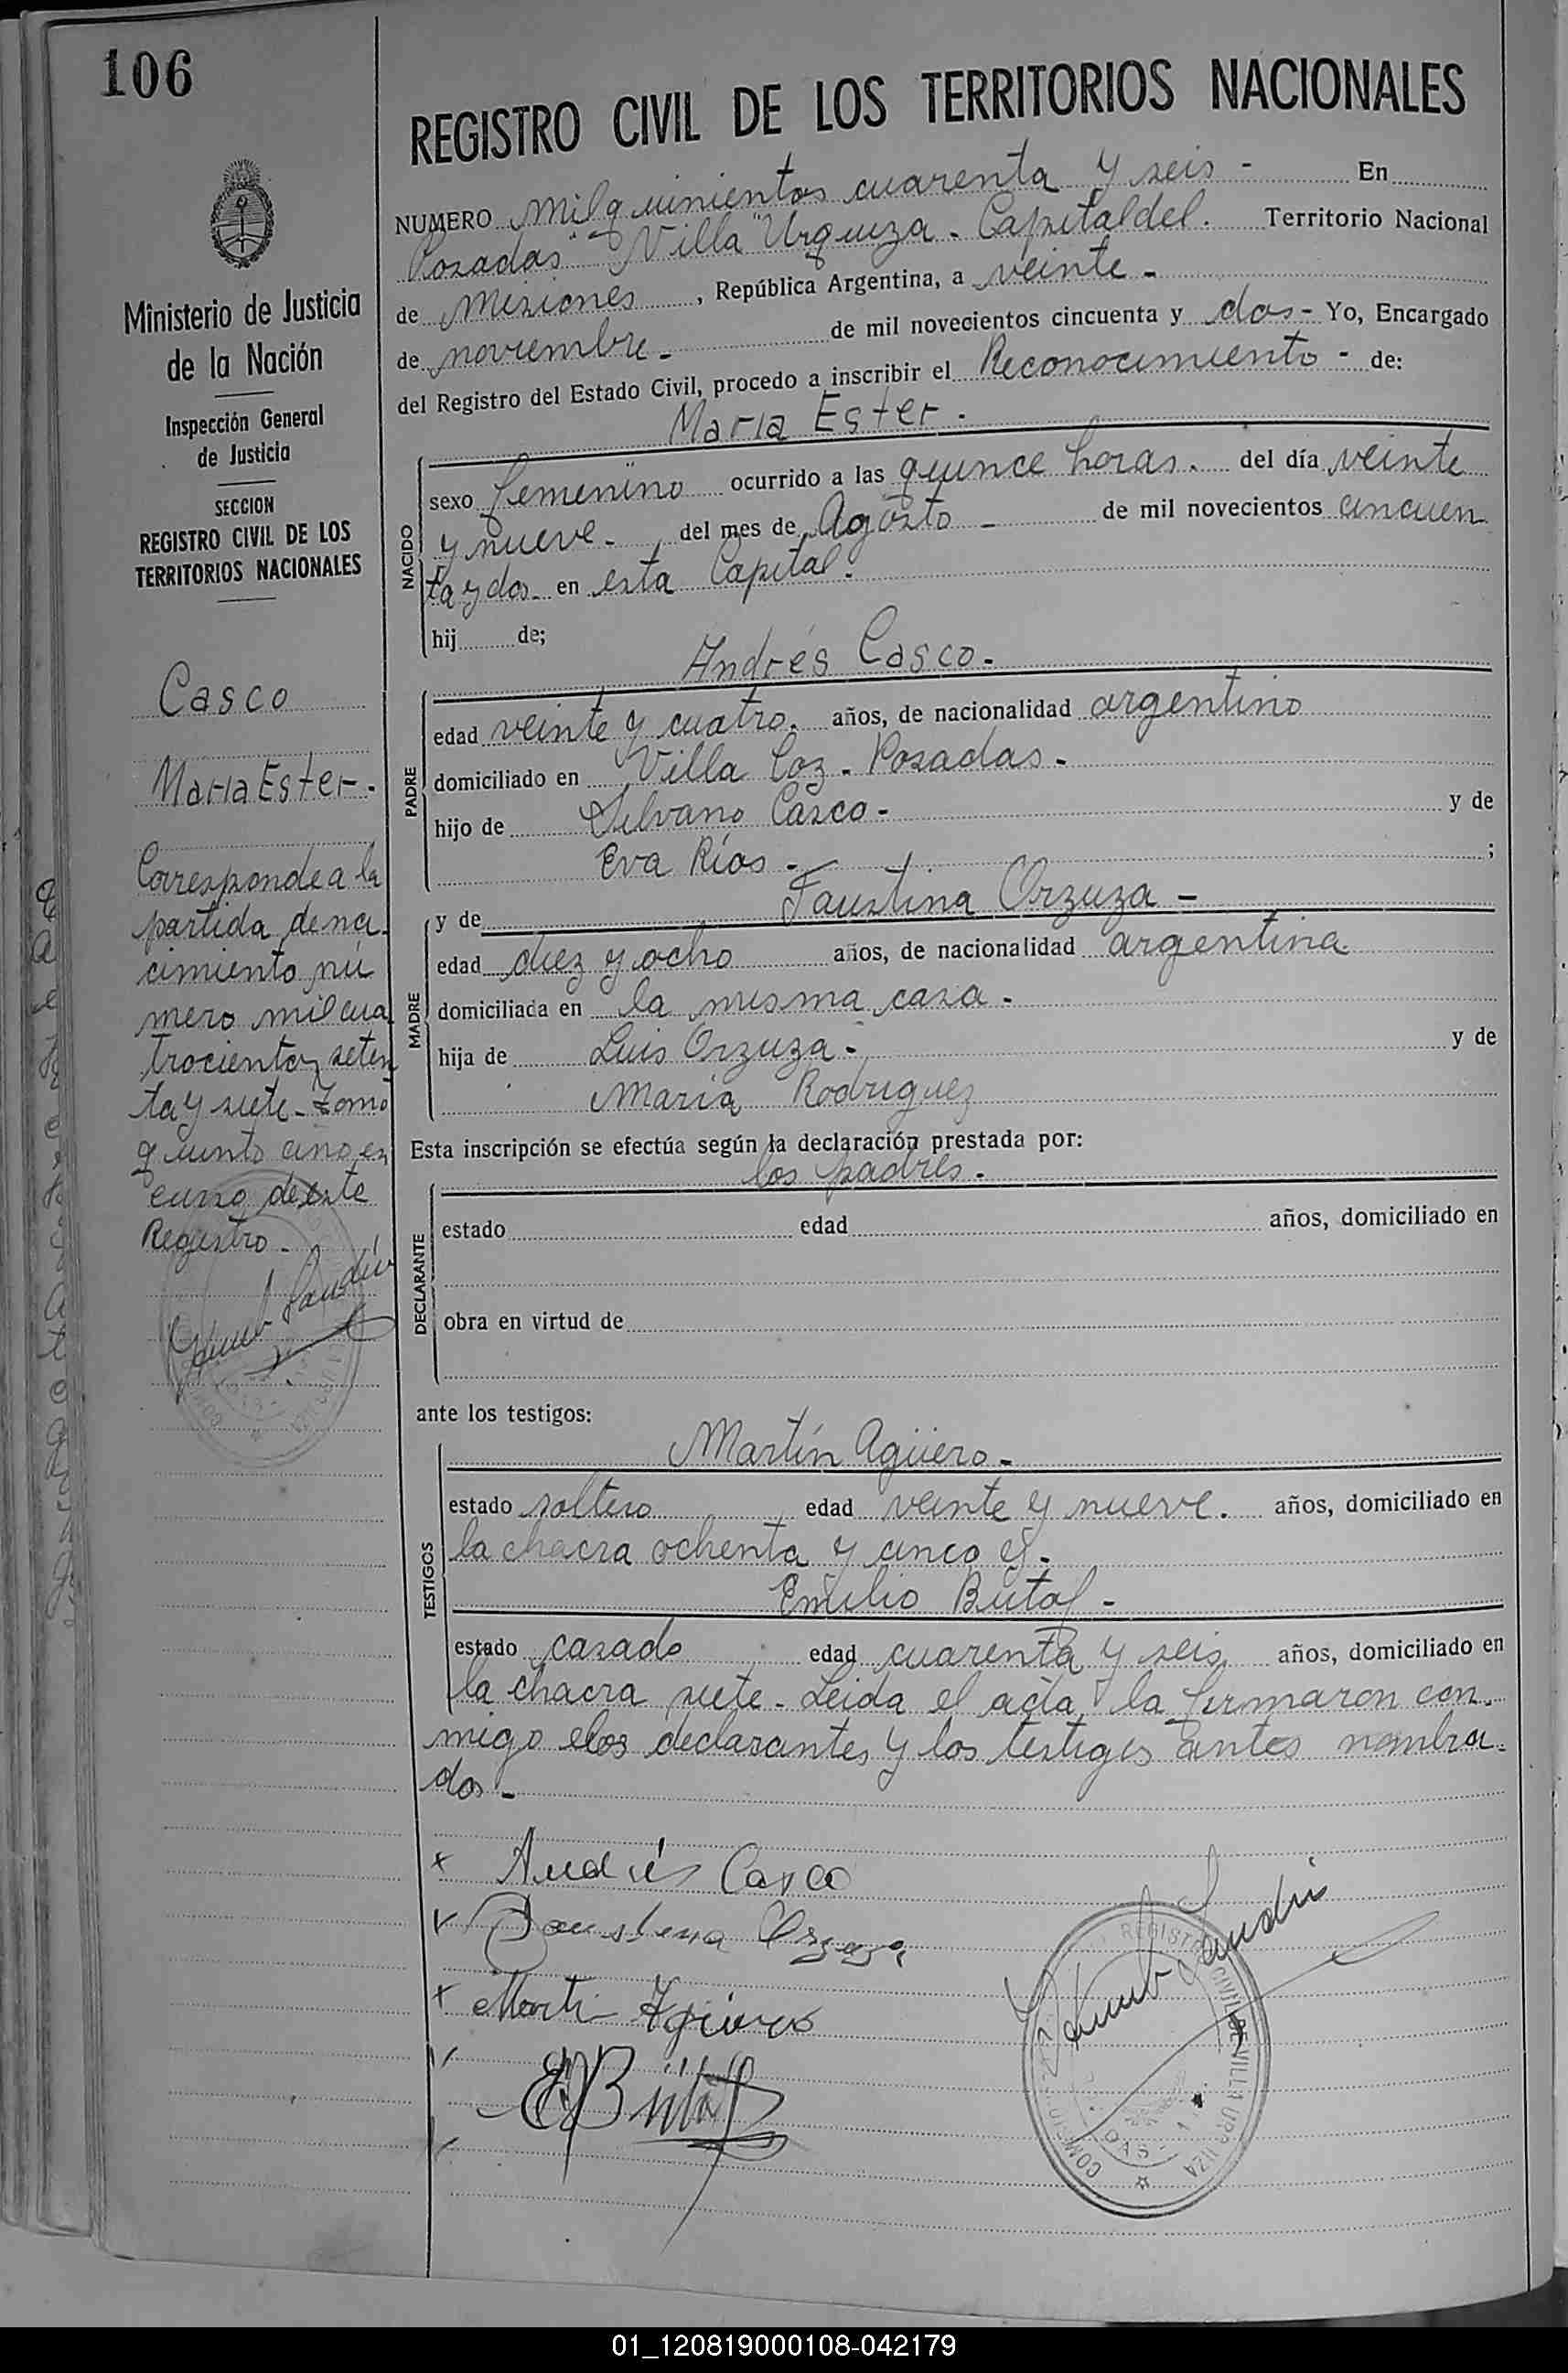 106
REGISTRO CIVIL DE LOS TERRITORIOS NACIONALES
NUMERO mil quinientos cuarenta y seis - En
Posadas "Villa Urquiza - Capital del. Territorio Nacional
de Misiones, República Argentina, a veinte -
de noviembre - de mil novecientos cincuenta y dos - Yo, Encargado
del Registro del Estado Civil, procedo a inscribir el Reconocimiento - de:
Maria Ester.
NACIDO
sexo femenino ocurrido a las quince horas. del día veinte
y nueve - del mes de Agosto - de mil novecientos cincuen
ta y dos - en esta Capital.
hij de;
Andrés Casco -
PADRE
edad veinte y cuatro. años, de nacionalidad argentino
domiciliado en Villa Coz - Posadas -
hijo de Silvano Casco - y de
Eva Ríos - ;
y de Faustina Orzuza -
MADRE
edad diez y ocho años, de nacionalidad argentina
domiciliada en la misma casa -
hija de Luis Orzuza - y de
Maria Rodriguez
Esta inscripción se efectúa según la declaración prestada por:
los padres -
DECLARANTE
estado edad años, domiciliado en
obra en virtud de
ante los testigos:
Martín Agüero -
TESTIGOS
estado soltero edad veinte y nueve. años, domiciliado en
la chacra ochenta y cinco y -
Emilio Bütof -
estado casado edad cuarenta y seis años, domiciliado en
la chacra siete - Leida el acta la firmaron con
migo los declarantes y los testigos antes nombra
dos -
Andrés Casco
Faustina Orzuza
Martin Agüero
E Bütof
Ministerio de Justicia
de la Nación
Inspección General
de Justicia
SECCION
REGISTRO CIVIL DE LOS
TERRITORIOS NACIONALES
Casco
Maria Ester -
Corresponde a la
partida de na
cimiento nú
mero mil cua
trocientos seten
ta y siete - tomo
quinto año en
curso de este
Registro -
REGISTRO CIVIL DE VILLA URQUIZA
01_120819000108-042179